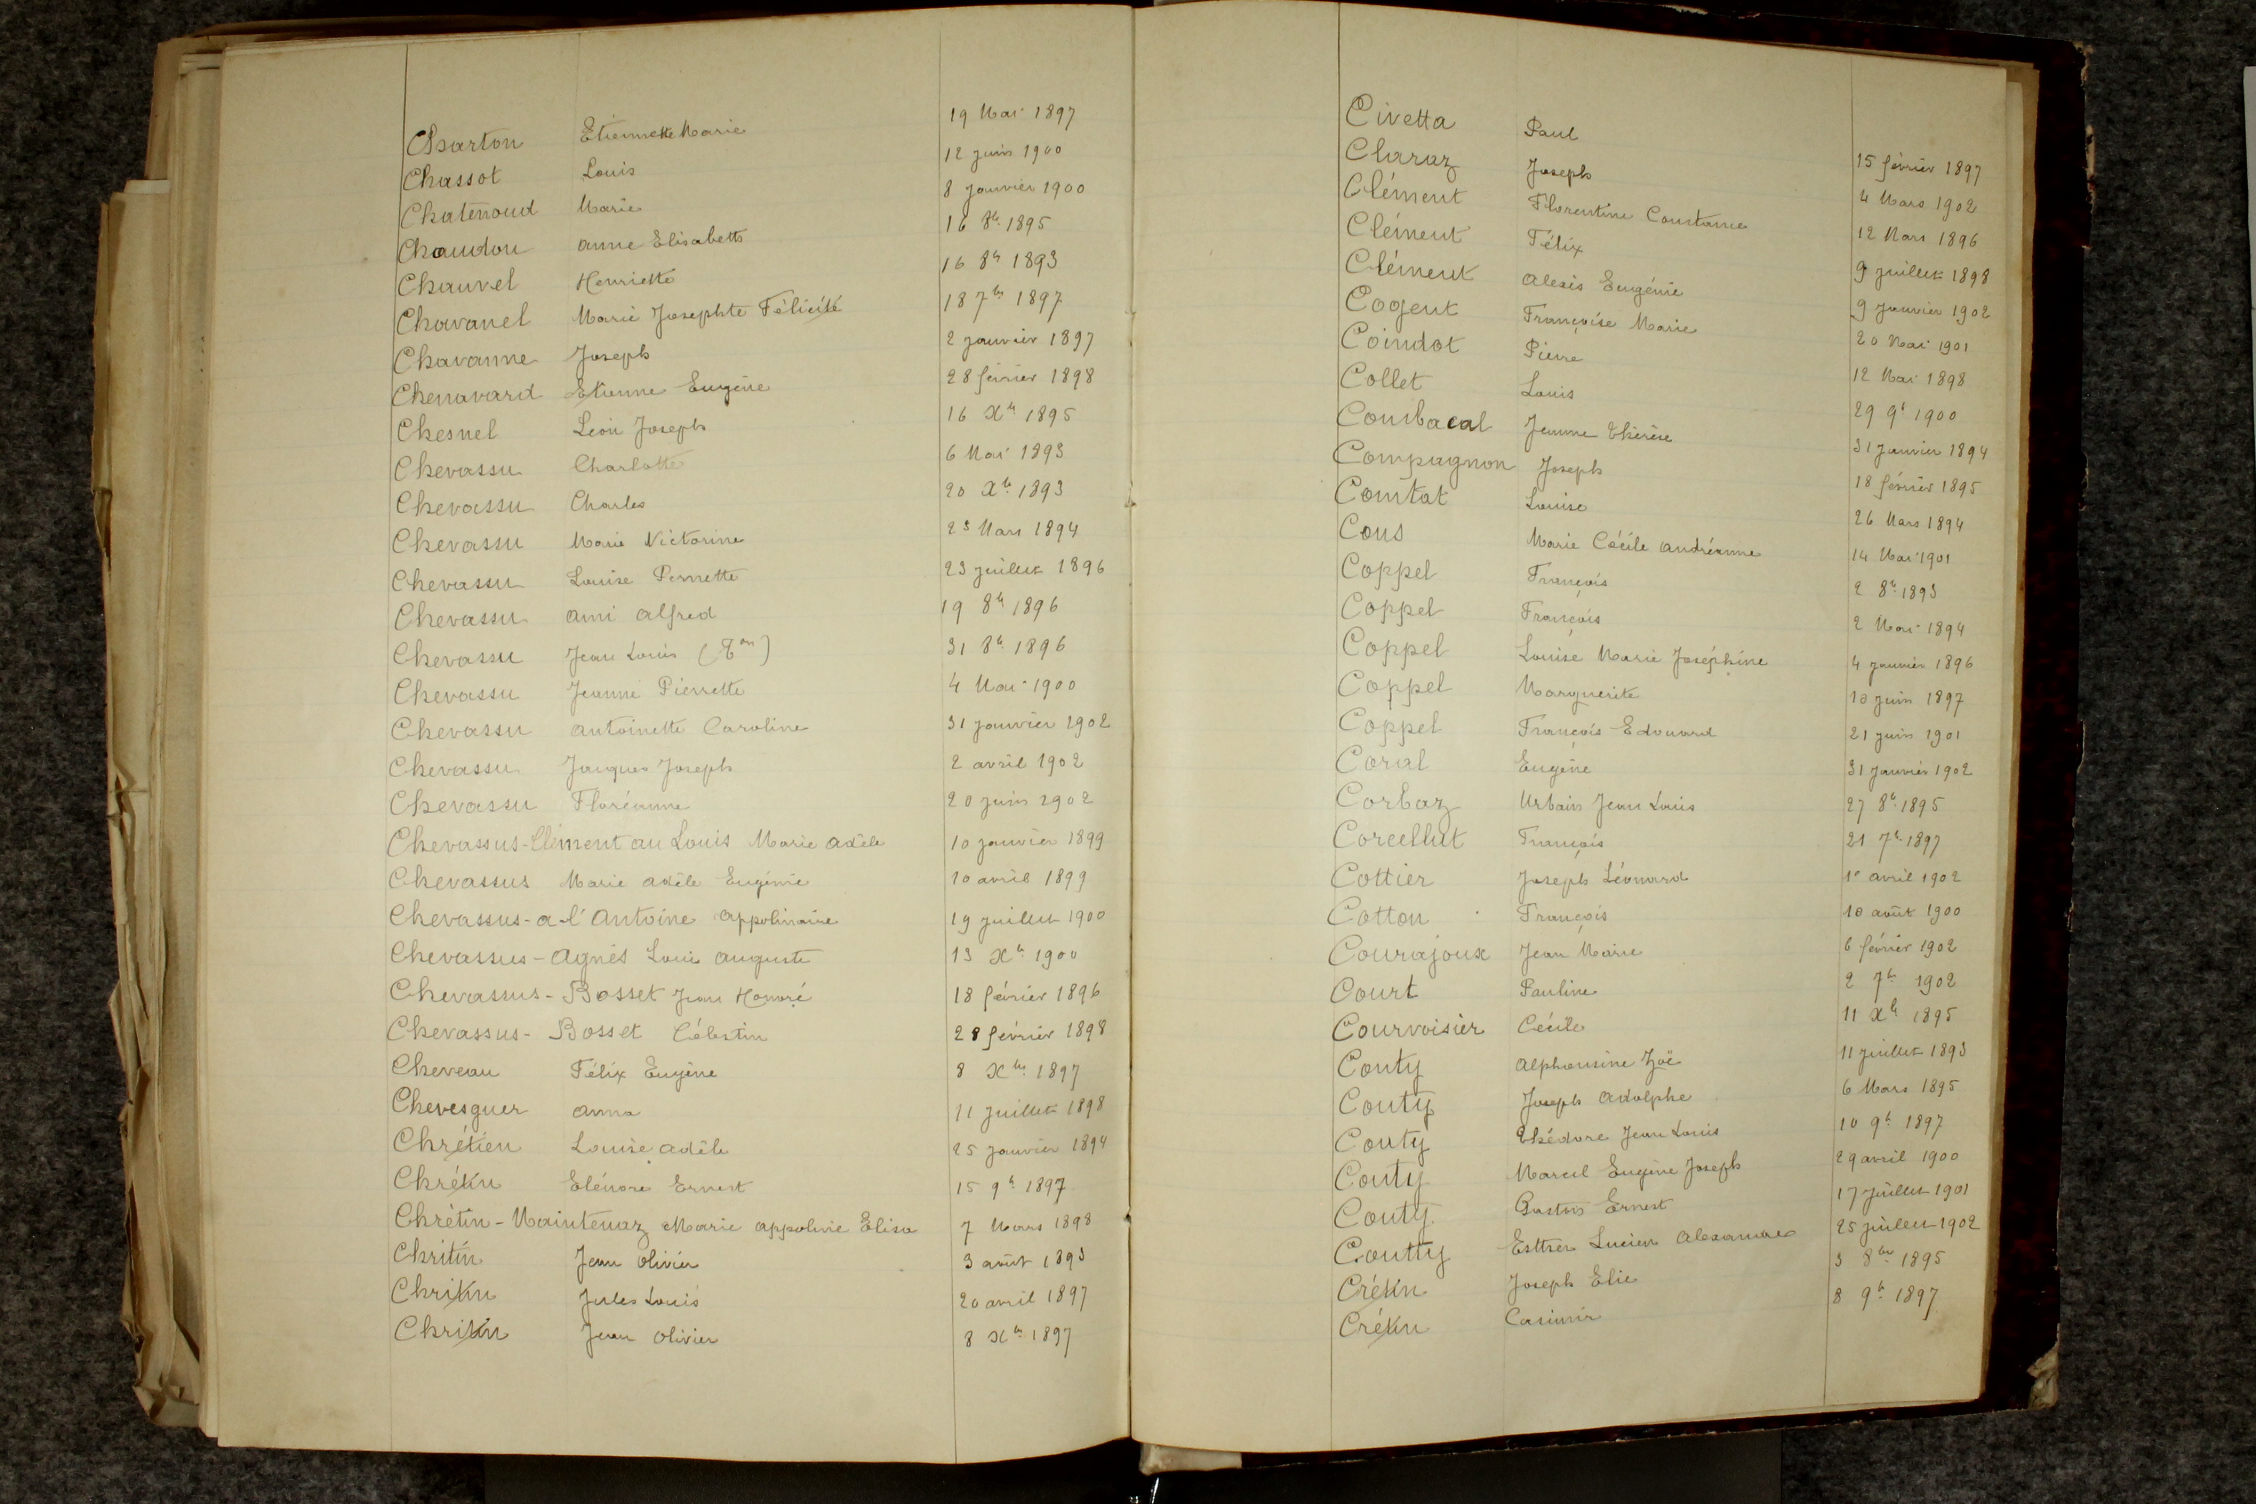 Charton Etiennette Marie 19 Mai 1897
Chassot Louis 12 juin 1900
Chatenoud Marie 8 Janvier 1900
Chaudon Anne Elisabeth 16 8bre 1895
Chauvel Henriette 16 8bre 1893
Chavanel Marie Josephte Félicité 18 7bre 1897
Chavanne Joseph 2 Janvier 1897
Chenavard Etienne Eugène 28 février 1898
Chesnel Léon Joseph 16 Xbre 1895
Chevassu Charlotte 6 Mai 1893
Chevassu Charles 20 Xbre 1893
Chevassu Marie Victorine 23 Mars 1894
Chevassu Louise Pernette 23 juillet 1896
Chevassu Ami Alfred 19 8bre 1896
Chevassu Jean Louis 31 8bre 1896
Chevassu Jeanne Pierrette 4 Mai 1900
Chevassu Antoinette Caroline 31 Janvier 1902
Chevassu Jacques Joseph 2 avril 1902
Chevassu Floréanne 20 juin 1902
Chevassus-Clément au Louis Marie Adèle 10 Janvier 1899
Chevassus Marie Adèle Eugénie 10 avril 1899
Chevassus-a-l'Antoine Appolinaire 19 juillet 1900
Chevassus-Agnès Louis Auguste 13 Xbre 1900
Chevassus-Bosset Jean Honoré 18 février 1896
Chevassus-Bosset Célestin 28 février 1898
Cheveau Félix Eugène 8 Xbre 1897
Chevesguer Anna 11 juillet 1898
Chrétien Louise Adèle 25 Janvier 1894
Chrétin Eléonore Ernest 15 9bre 1897
Chrétin-Maintenaz Marie Appolinie Elisa 7 Mars 1898
Chritin Jean Olivier 3 août 1893
Chritin Jules Louis 20 avril 1897
Chritin Jean Olivier 8 Xbre 1897
Civetta Paul 15 février 1897
Claraz Joseph 4 Mars 1902
Clément Florentine Constance 12 Mars 1896
Clément Félix 9 juillet 1898
Clément Alexis Eugénie 9 Janvier 1902
Cogent Françoise Marie 20 Mai 1901
Coindot Pierre 12 Mai 1898
Collet Louis 29 9bre 1900
Combacal Jeanne Thérèse 31 Janvier 1894
Compagnon Joseph 18 février 1895
Comtat Louise 26 Mars 1894
Cous Marie Cécile Andréanne 14 Mai 1901
Coppel François 2 8bre 1893
Coppel François 2 Mai 1894
Coppel Louise Marie Joséphine 4 Janvier 1896
Coppel Marguerite 10 juin 1897
Coppel François-Edouard 21 juin 1901
Coral Eugène 31 Janvier 1902
Corbaz Urbain Jean Louis 27 8bre 1895
Corcellut François 21 7bre 1897
Cottier Joseph Léonard 1er avril 1902
Cotton François 10 août 1900
Courajoux Jean Marie 6 février 1902
Court Pauline 2 7bre 1902
Courvoisier Cécile 11 Xbre 1895
Couty Alphonsine Zoë 11 juillet 1893
Couty Joseph Adolphe 6 Mars 1895
Couty Théodore Jean Louis 10 9bre 1897
Couty Marcel Eugène Joseph 29 avril 1900
Couty Gaston Ernest 17 juillet 1901
Coutty Esther Lucien Alexandre 25 juillet 1902
Crétin Joseph Elie 3 8bre 1895
Crétin Casimir 8 9bre 1897